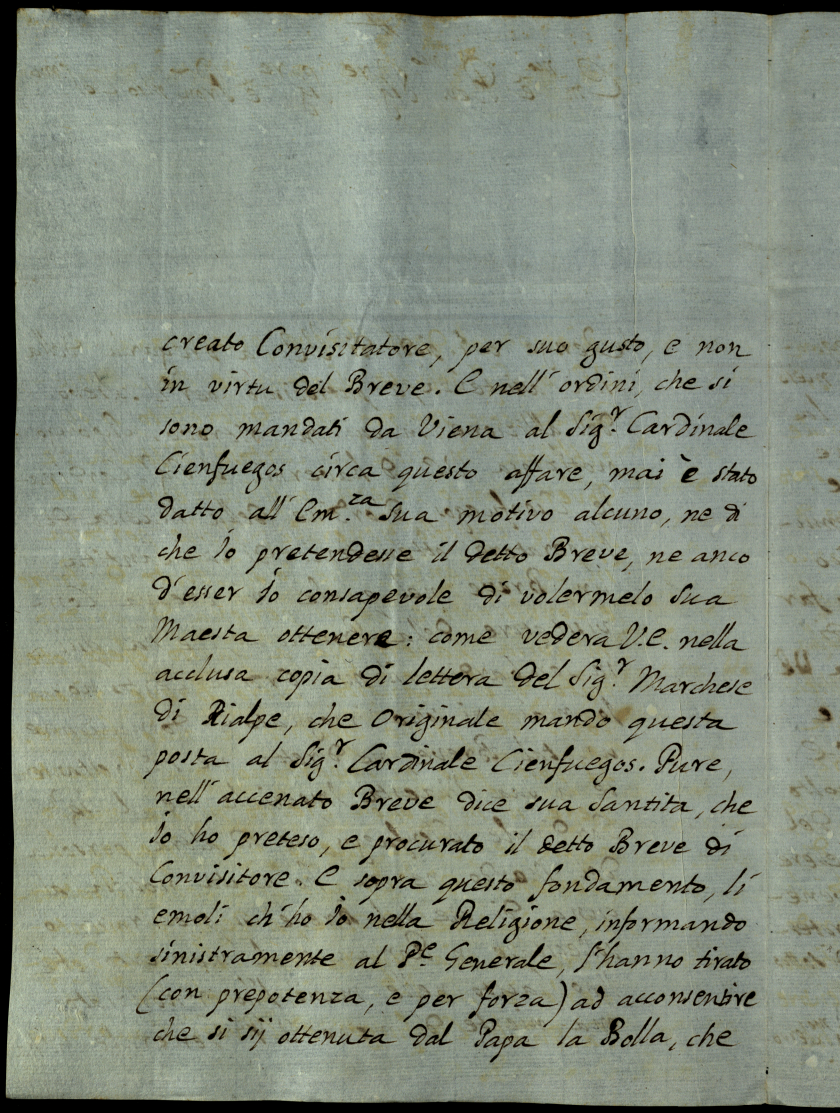 creato Convisitatore, per suo gusto, e non
in virtu del Breve. E nell' ordini, che si
sono mandati da Viena al Sig.r Cardinale
Cienfuegos circa questo affare, mai è stato
datto all' Em.za Sua motivo alcuno, ne di
che Io pretendesse il detto Breve, ne anco
d'esser Io consapevole di volermelo Sua
Maesta ottenere: come vedera V.E. nella
acclusa copia di lettera del Sig.r Marchese
di Rialpe, che Originale mando questa
posta al Sig.r Cardinale Cienfuegos. Pure,
nell' accenato Breve dice sua Santita, che
Io ho preteso, e procurato il detto Breve di
Convisitore. E sopra questo fondamento, li
emoli ch' ho Io nella Religione, informando
sinistramente al P.e Generale, l'hanno tirato
(con prepotenza, e per forza) ad acconsentire
che si sij ottenuta dal Papa la Bolla, che